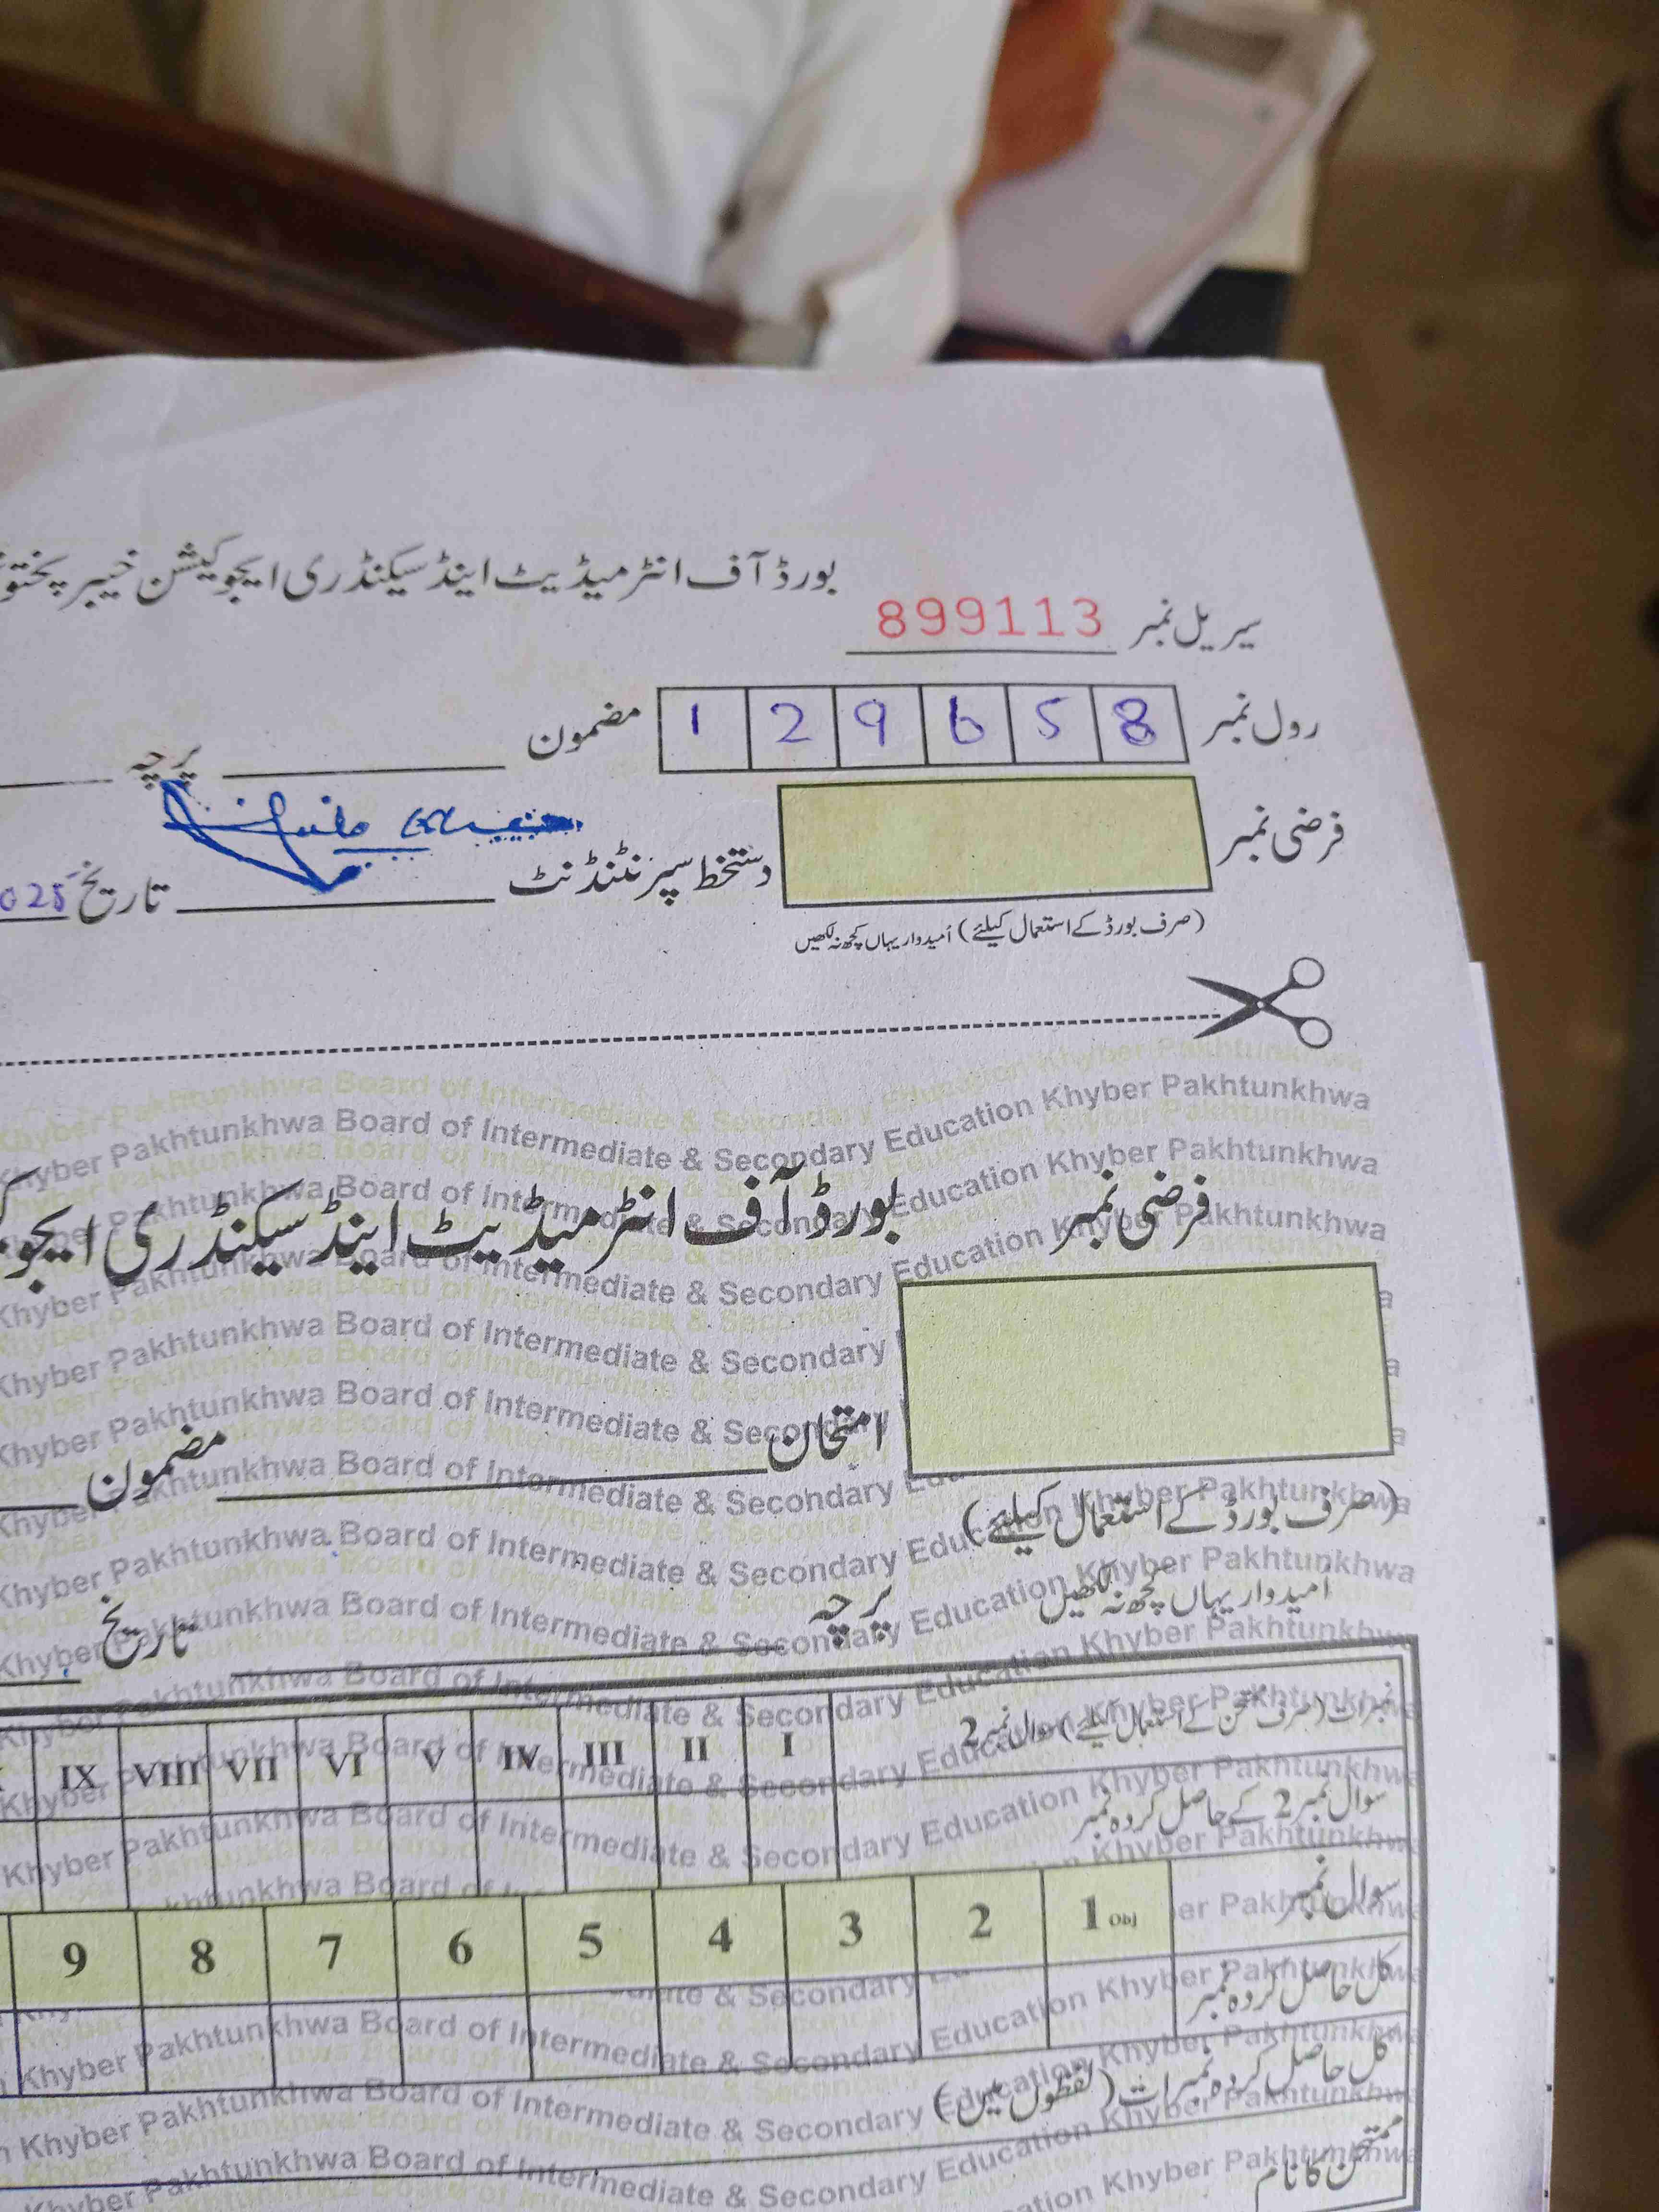 بورڈ آف انٹرمیڈیٹ اینڈ سیکنڈری ایجوکیشن خیبر پختو
سیریل نمبر 899113
رول نمبر 1 2 9 6 5 8 مضمون پرچہ
فرضی نمبر دستخط سپرنٹنڈنٹ تاریخ 025
(صرف بورڈ کے استعمال کیلئے) اُمیدوار یہاں کچھ نہ لکھیں
Khyber Pakhtunkhwa Board of Intermediate & Secondary Education Khyber Pakhtunkhwa
فرضی نمبر بورڈ آف انٹرمیڈیٹ اینڈ سیکنڈری ایجو
امتحان مضمون
(صرف بورڈ کے استعمال کیلئے)
اُمیدوار یہاں کچھ نہ لکھیں
پرچہ تاریخ
نمبرات (صرف ممتحن کے استعمال کیلئے) سوال نمبر 2 I II III IV V VI VII VIII IX
سوال نمبر 2 کے حاصل کردہ نمبر
سوال نمبر 1 Obj 2 3 4 5 6 7 8 9
کل حاصل کردہ نمبر
کل حاصل کردہ نمبرات (لفظوں میں)
ممتحن کا نام